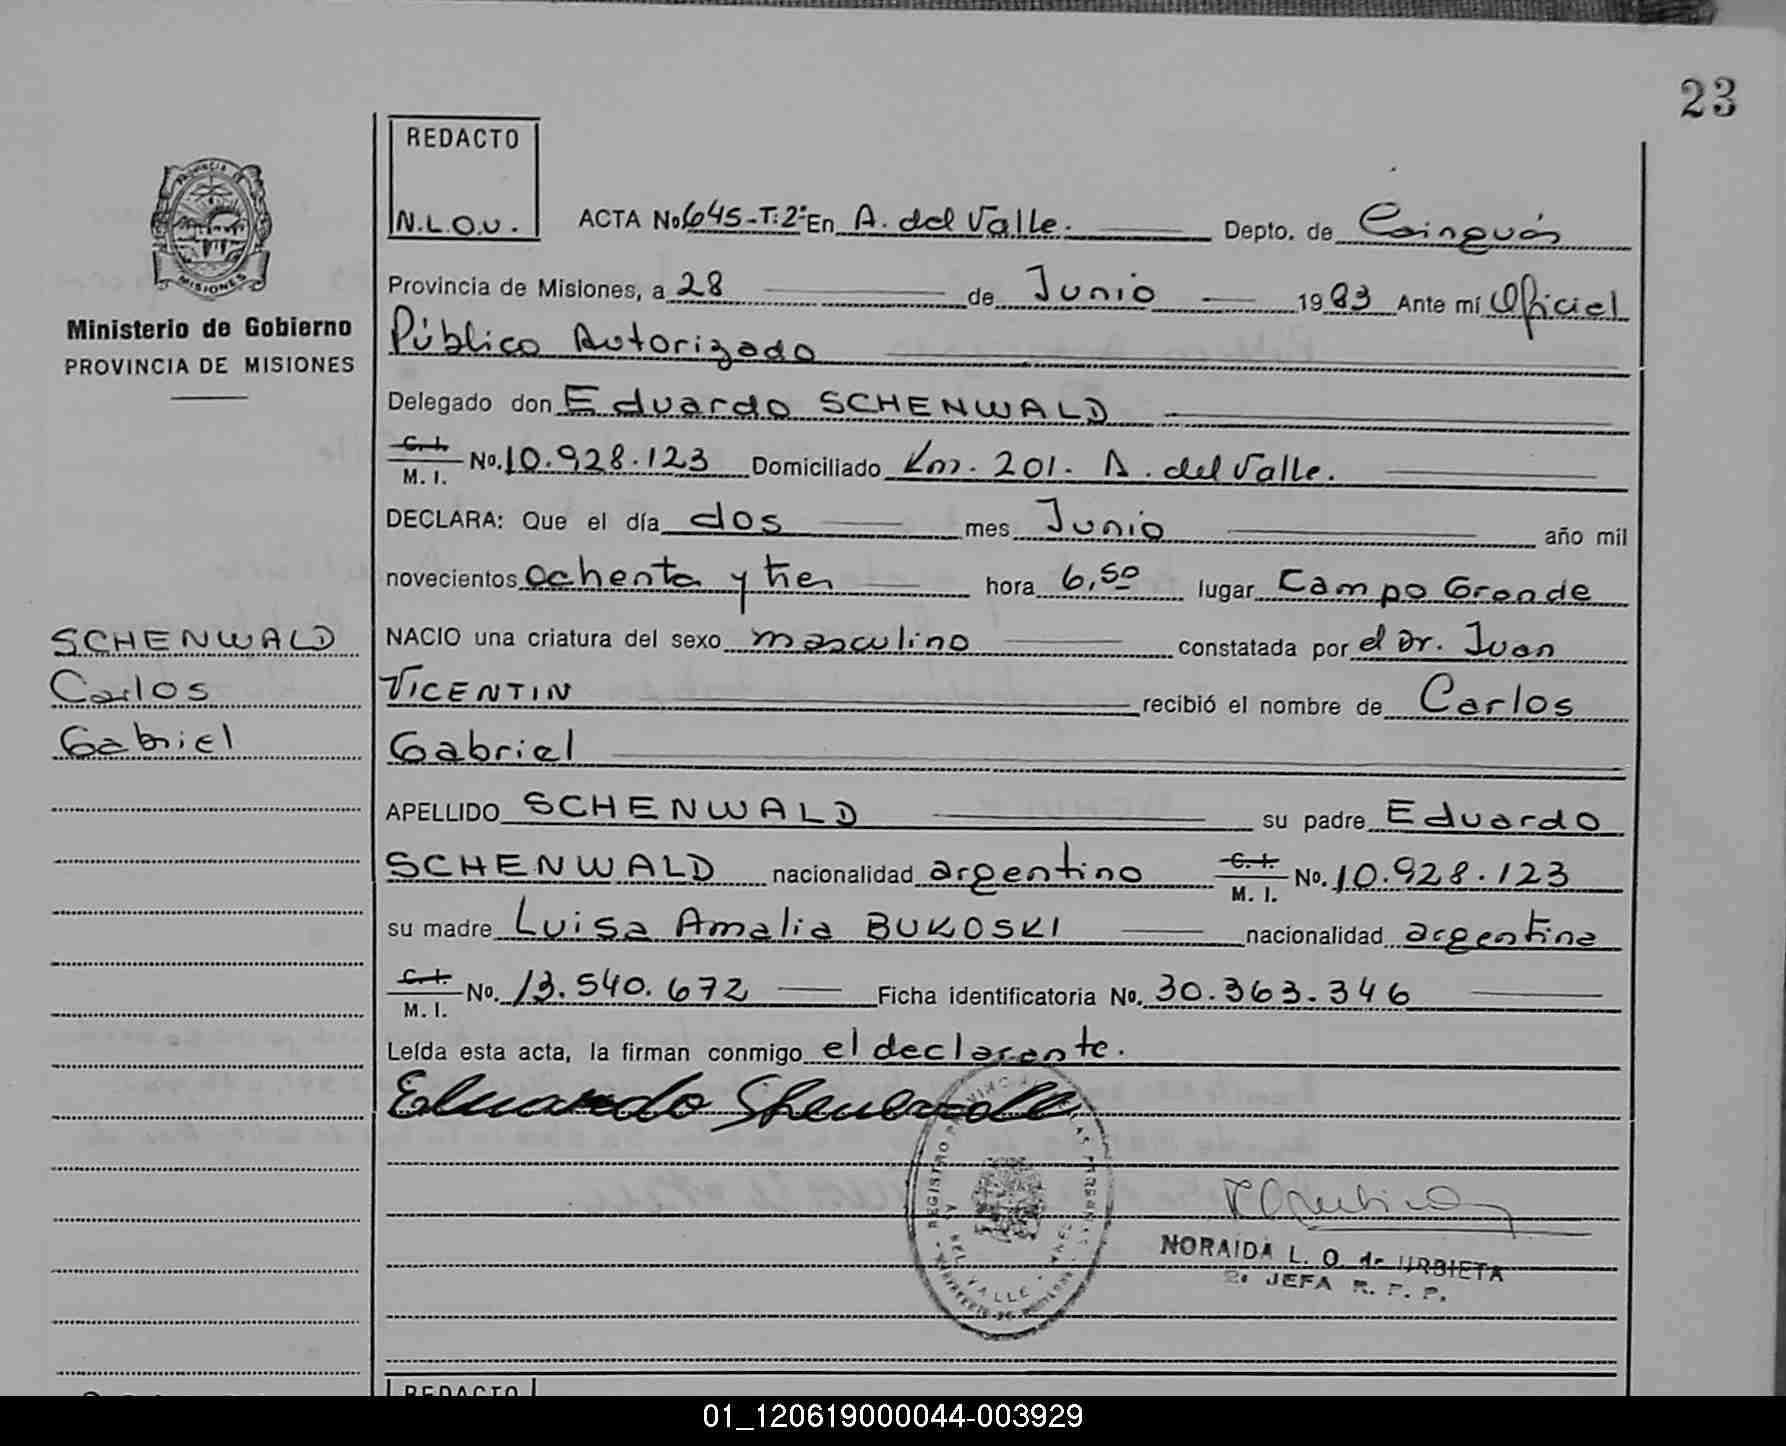 23
REDACTO
N.L.O.U.
PROVINCIA DE
MISIONES
Ministerio de Gobierno
PROVINCIA DE MISIONES
ACTA No. 645-T:2º En A. del Valle. Depto. de Cainguás
Provincia de Misiones, a 28 de Junio 1983 Ante mí Oficial
Público Autorizado
Delegado don Eduardo SCHENWALD
C. I. M. I. No. 10.928.123 Domiciliado Km. 201. A. del Valle.
DECLARA: Que el día dos mes Junio año mil
novecientos ochenta y tres hora 6,50 lugar Campo Grande
NACIO una criatura del sexo masculino constatada por el Dr. Juan
VICENTIN recibió el nombre de Carlos
Gabriel
SCHENWALD
Carlos
Gabriel
APELLIDO SCHENWALD su padre Eduardo
SCHENWALD nacionalidad argentino C. I. M. I. No. 10.928.123
su madre Luisa Amalia BUKOSKI nacionalidad argentina
C. I. M. I. No. 13.540.672 Ficha identificatoria No. 30.363.346
Leída esta acta, la firman conmigo el declarante.
Eduardo
REGISTRO
DEL VALLE
NORAIDA L. O. de URBIETA
2º JEFA R. P. P.
REDACTO
01_120619000044-003929